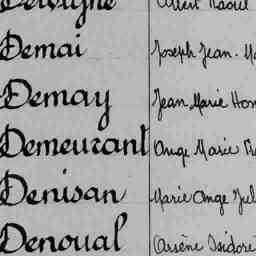 Demai Joseph Jean-
Demay Jean Marie
Demeurant Ange Marie
Denisan Marie Ange
Denoual Arsène Isidore